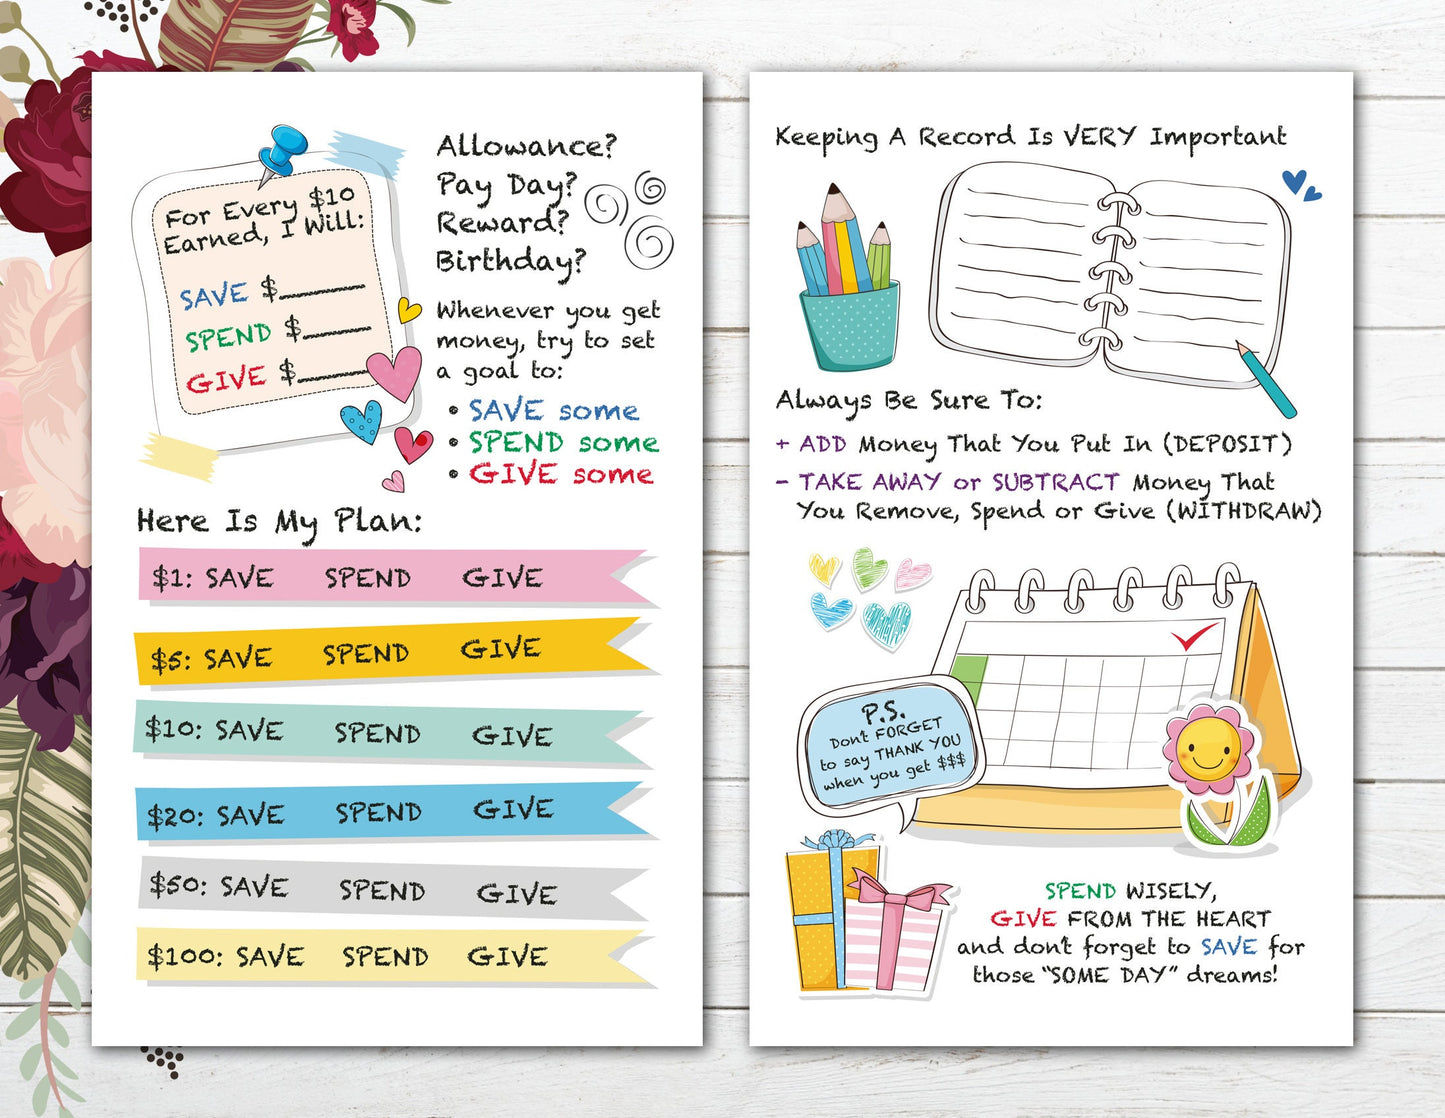 For Every $10
Earned, I Will:
SAVE $______
SPEND $______
GIVE $______
Allowance?
Pay Day?
Reward?
Birthday?
Whenever you get
money, try to set
a goal to:
• SAVE some
• SPEND some
• GIVE some
Here Is My Plan:
$1: SAVE SPEND GIVE
$5: SAVE SPEND GIVE
$10: SAVE SPEND GIVE
$20: SAVE SPEND GIVE
$50: SAVE SPEND GIVE
$100: SAVE SPEND GIVE
Keeping A Record Is VERY Important
Always Be Sure To:
+ ADD Money That You Put In (DEPOSIT)
- TAKE AWAY or SUBTRACT Money That
You Remove, Spend or Give (WITHDRAW)
P.S.
Don't FORGET
to say THANK YOU
when you get $$$
SPEND WISELY,
GIVE FROM THE HEART
and don't forget to SAVE for
those "SOME DAY" dreams!